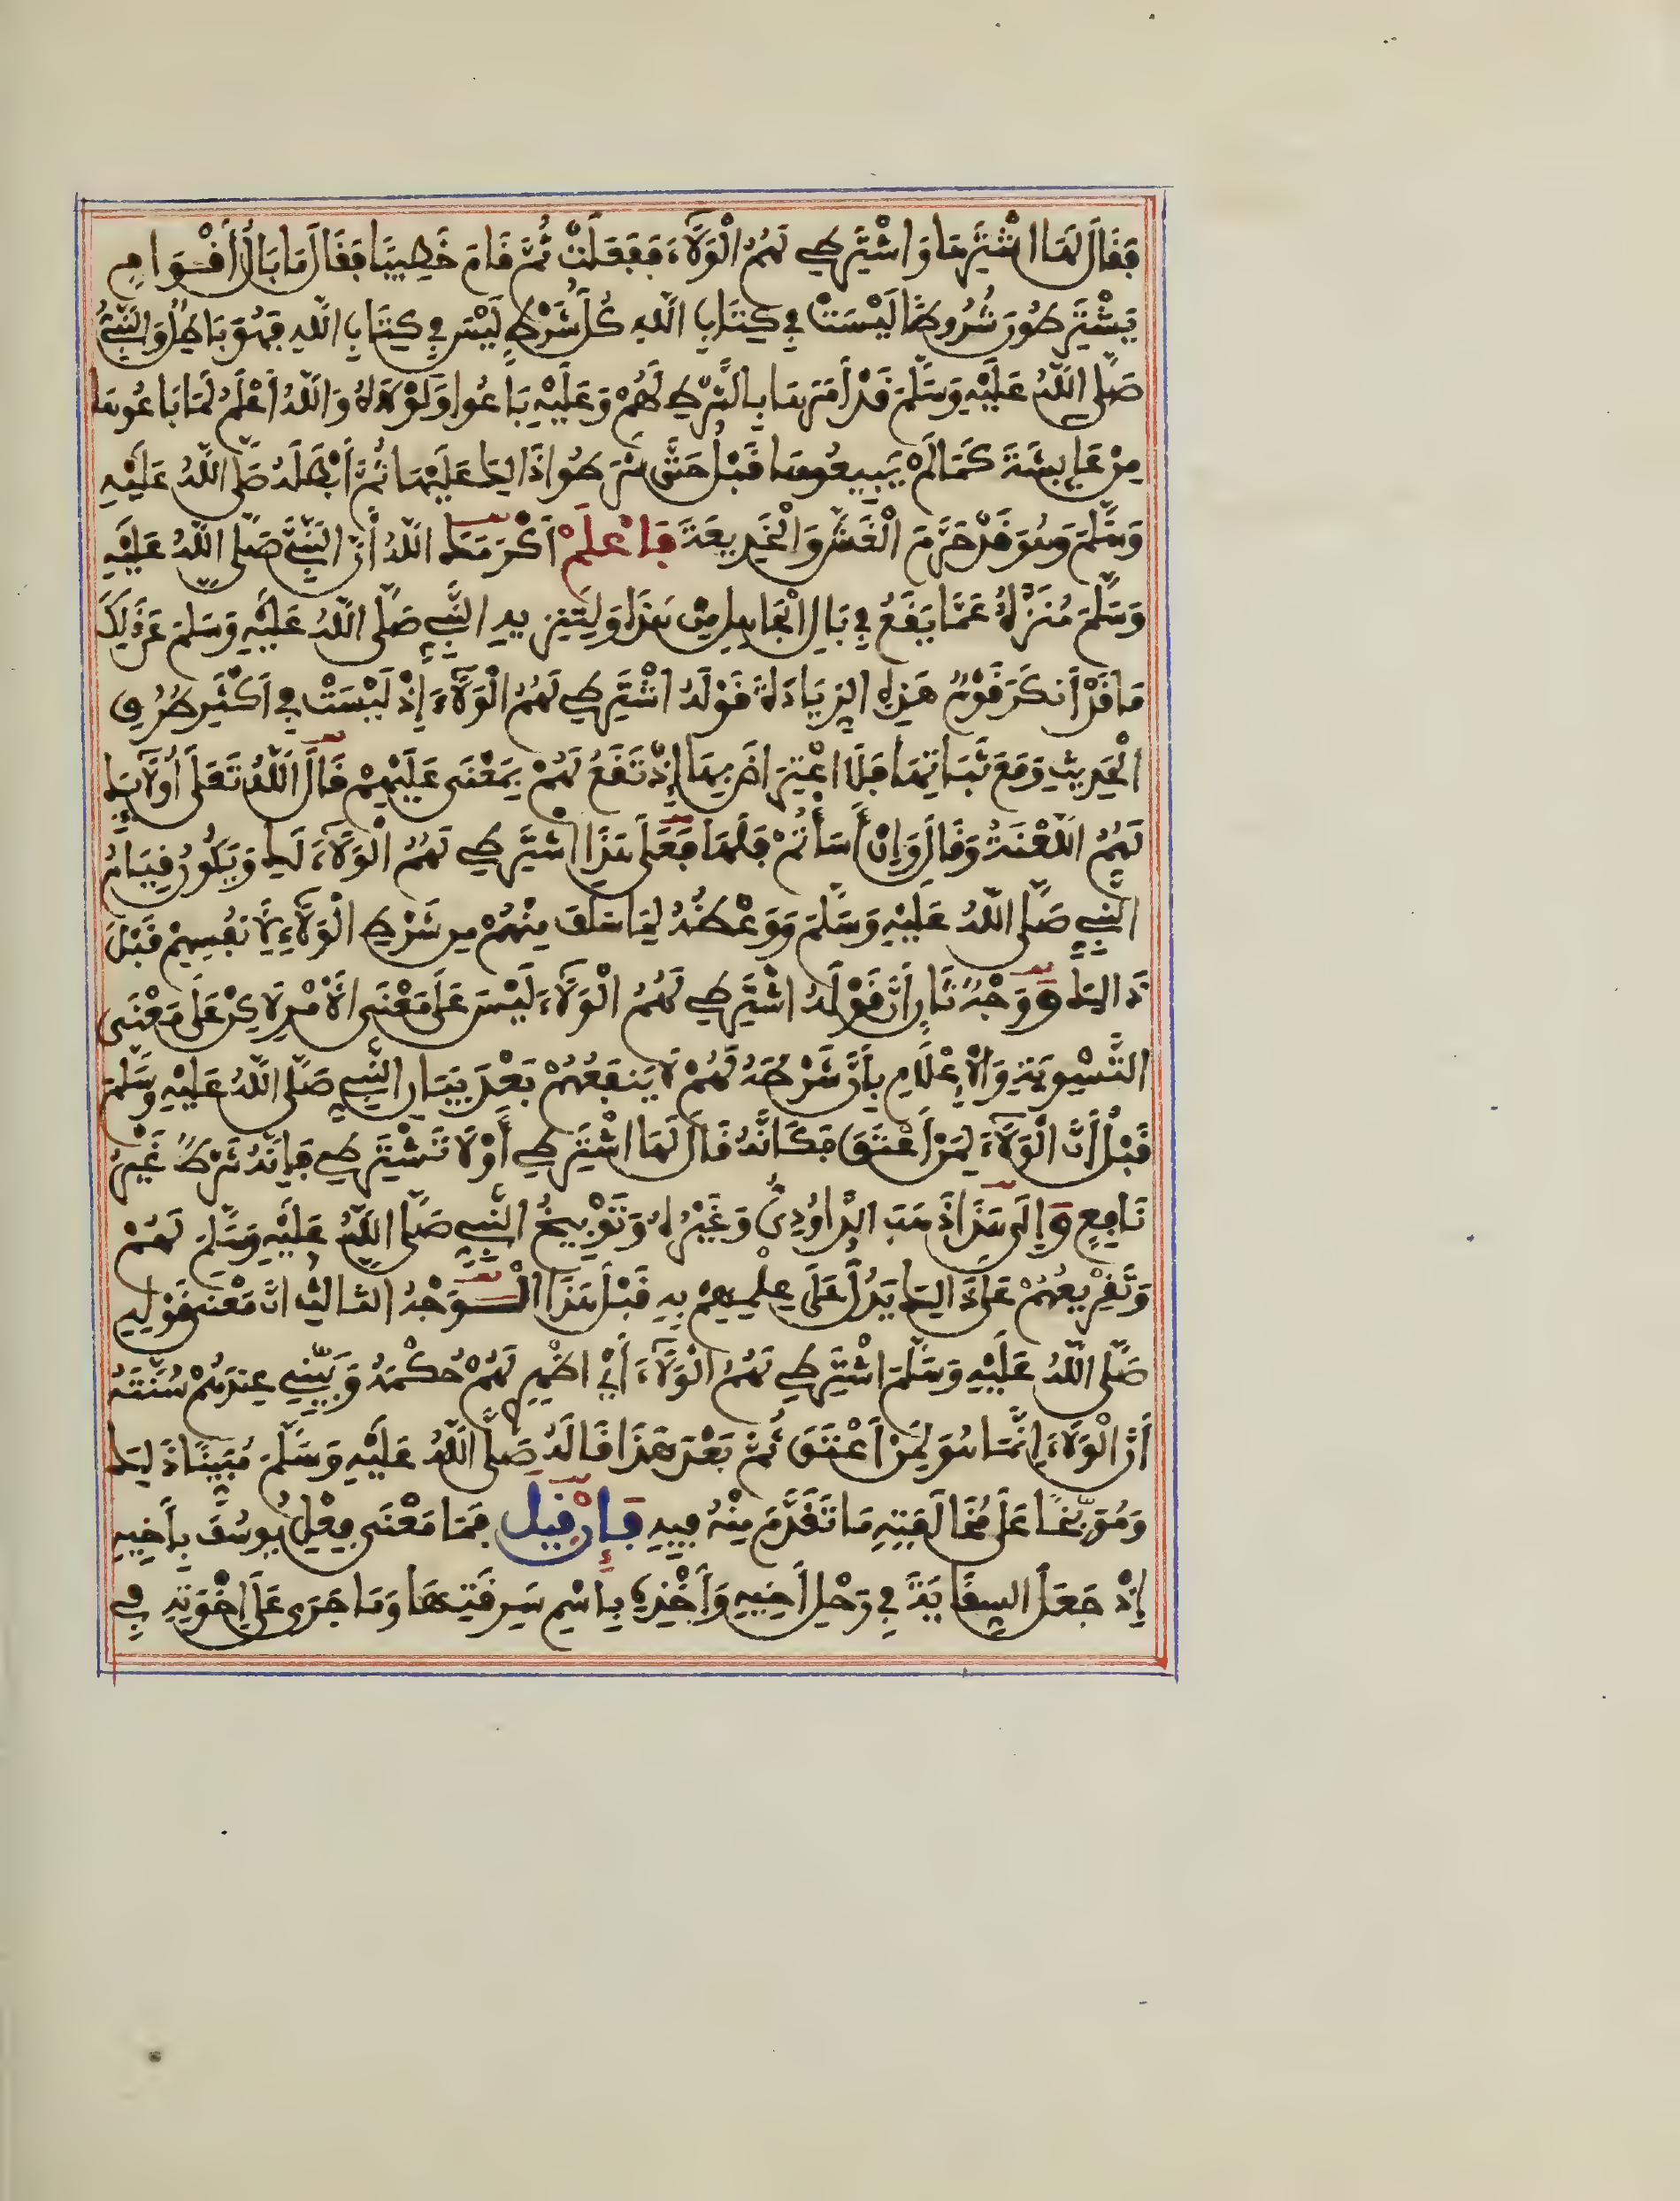 فَقَالَ لَهَا اشْتَرِيهَا وَاشْتَرِطِي لَهُمُ الْوَلَاءَ فَفَعَلَتْ ثُمَّ قَامَ خَطِيبًا فَقَالَ مَا بَالُ أَقْوَامٍ
يَشْتَرِطُونَ شُرُوطًا لَيْسَتْ فِي كِتَابِ اللَّهِ كُلُّ شَرْطٍ لَيْسَ فِي كِتَابِ اللَّهِ فَهُوَ بَاطِلٌ وَالنَّبِيُّ
صَلَّى اللَّهُ عَلَيْهِ وَسَلَّمَ قَدْ أَمَرَهَا بِالشَّرْطِ لَهُمْ وَعَلَيْهِ بَاعُوا وَلَوْلَاهُ وَاللَّهُ أَعْلَمُ لَمَا بَاعُوهَا
مِنْ عَايِشَةَ كَمَا لَمْ يَبِيعُوهَا قَبْلُ حَتَّى شَرَطُوا ذَالِكَ عَلَيْهَا ثُمَّ أَبْطَلَهُ صَلَّى اللَّهُ عَلَيْهِ
وَسَلَّمَ وَهُوَ قَدْ حَرَّمَ الْغَشَّ وَالْخَدِيعَةَ فَاعْلَمْ أَكْرَمَكَ اللَّهُ أَنَّ النَّبِيَّ صَلَّى اللَّهُ عَلَيْهِ
وَسَلَّمَ مُنَزَّهٌ عَمَّا يَقَعُ فِي بَالِ الْجَاهِلِ مِنْ هَذَا وَلِتَنْزِيهِ النَّبِيِّ صَلَّى اللَّهُ عَلَيْهِ وَسَلَّمَ عَنْ ذَلِكَ
مَا قَدْ أَنكَرَ قَوْمٌ هَذِهِ الزِّيَادَةَ قَوْلَهُ اشْتَرِطِي لَهُمُ الْوَلَاءَ إِذْ لَيْسَتْ فِي أَكْثَرِ طُرُقِ
الْحَدِيثِ وَمَعَ ثَبَاتِهَا فَلَا اعْتِرَاضَ بِهَا إِذْ تَقَعُ لَهُمْ بِمَعْنَى عَلَيْهِمْ قَالَ اللَّهُ تَعَلَى أُولَايِكَ
لَهُمُ اللَّعْنَةُ وَقَالَ وَإِنْ أَسَأْتُمْ فَلَهَا فَعَلَى هَذَا اشْتَرِطِي لَهُمُ الْوَلَاءَ لَكِ وَيَكُونُ قِيَامُ
النَّبِيِّ صَلَّى اللَّهُ عَلَيْهِ وَسَلَّمَ وَوَعْظُهُ لِمَا سَلَفَ مِنْهُمْ مِن شَرْطِ الْوَلَاءِ لِأَنفُسِهِمْ قَبْلَ
ذَالِكَ وَوَجْهٌ ثَانٍ أَنَّ قَوْلَهُ اشْتَرِطِي لَهُمُ الْوَلَاءَ لَيْسَ عَلَى مَعْنَى الْأَمْرِ لَكِنْ عَلَى مَعْنَى
التَّسْوِيَةِ وَالْإِعْلَامِ بِأَنَّ شَرْطَهُ لَهُمْ لَا يَنفَعُهُمْ بَعْدَ بَيَانِ النَّبِيِّ صَلَّى اللَّهُ عَلَيْهِ وَسَلَّمَ
قَبْلُ أَنَّ الْوَلَاءَ لِمَنْ أَعْتَقَ فَكَأَنَّهُ قَالَ لَهَا اشْتَرِطِي أَوْ لَا تَشْتَرِطِي فَإِنَّهُ شَرْطٌ غَيْرُ
نَافِعٍ وَإِلَى هَذَا ذَهَبَ الدَّاوُدِيُّ وَغَيْرُهُ وَتَوْبِيخُ النَّبِيِّ صَلَّى اللَّهُ عَلَيْهِ وَسَلَّمَ لَهُمْ
وَتَقْرِيعُهُمْ عَلَى ذَالِكَ يَدُلُّ عَلَى عِلْمِهِمْ بِهِ قَبْلَ هَذَا الْوَجْهُ الثَّالِثُ أَنَّ مَعْنَى قَوْلِهِ
صَلَّى اللَّهُ عَلَيْهِ وَسَلَّمَ اشْتَرِطِي لَهُمُ الْوَلَاءَ أَيْ أَظْهِرِي لَهُمْ حُكْمَهُ وَبَيِّنِي عِندَهُمْ سُنَّتَهُ
أَنَّ الْوَلَاءَ إِنَّمَا هُوَ لِمَنْ أَعْتَقَ ثُمَّ بَعْدَ هَذَا قَالَهُ صَلَّى اللَّهُ عَلَيْهِ وَسَلَّمَ مُبَيِّنًا ذَلِكَ
وَمُوَبِّخًا عَلَى مُخَالَفَتِهِ مَا تَقَدَّمَ مِنْهُ فِيهِ فَإِن قِيلَ فَمَا مَعْنَى فِعْلِ يُوسُفَ بِأَخِيهِ
إِذْ جَعَلَ السِّقَايَةَ فِي رَحْلِ أَخِيهِ وَأَخْذِهِ بِاسْمِ سَرِقَتِهَا وَمَا جَرَى عَلَى إِخْوَتِهِ فِي